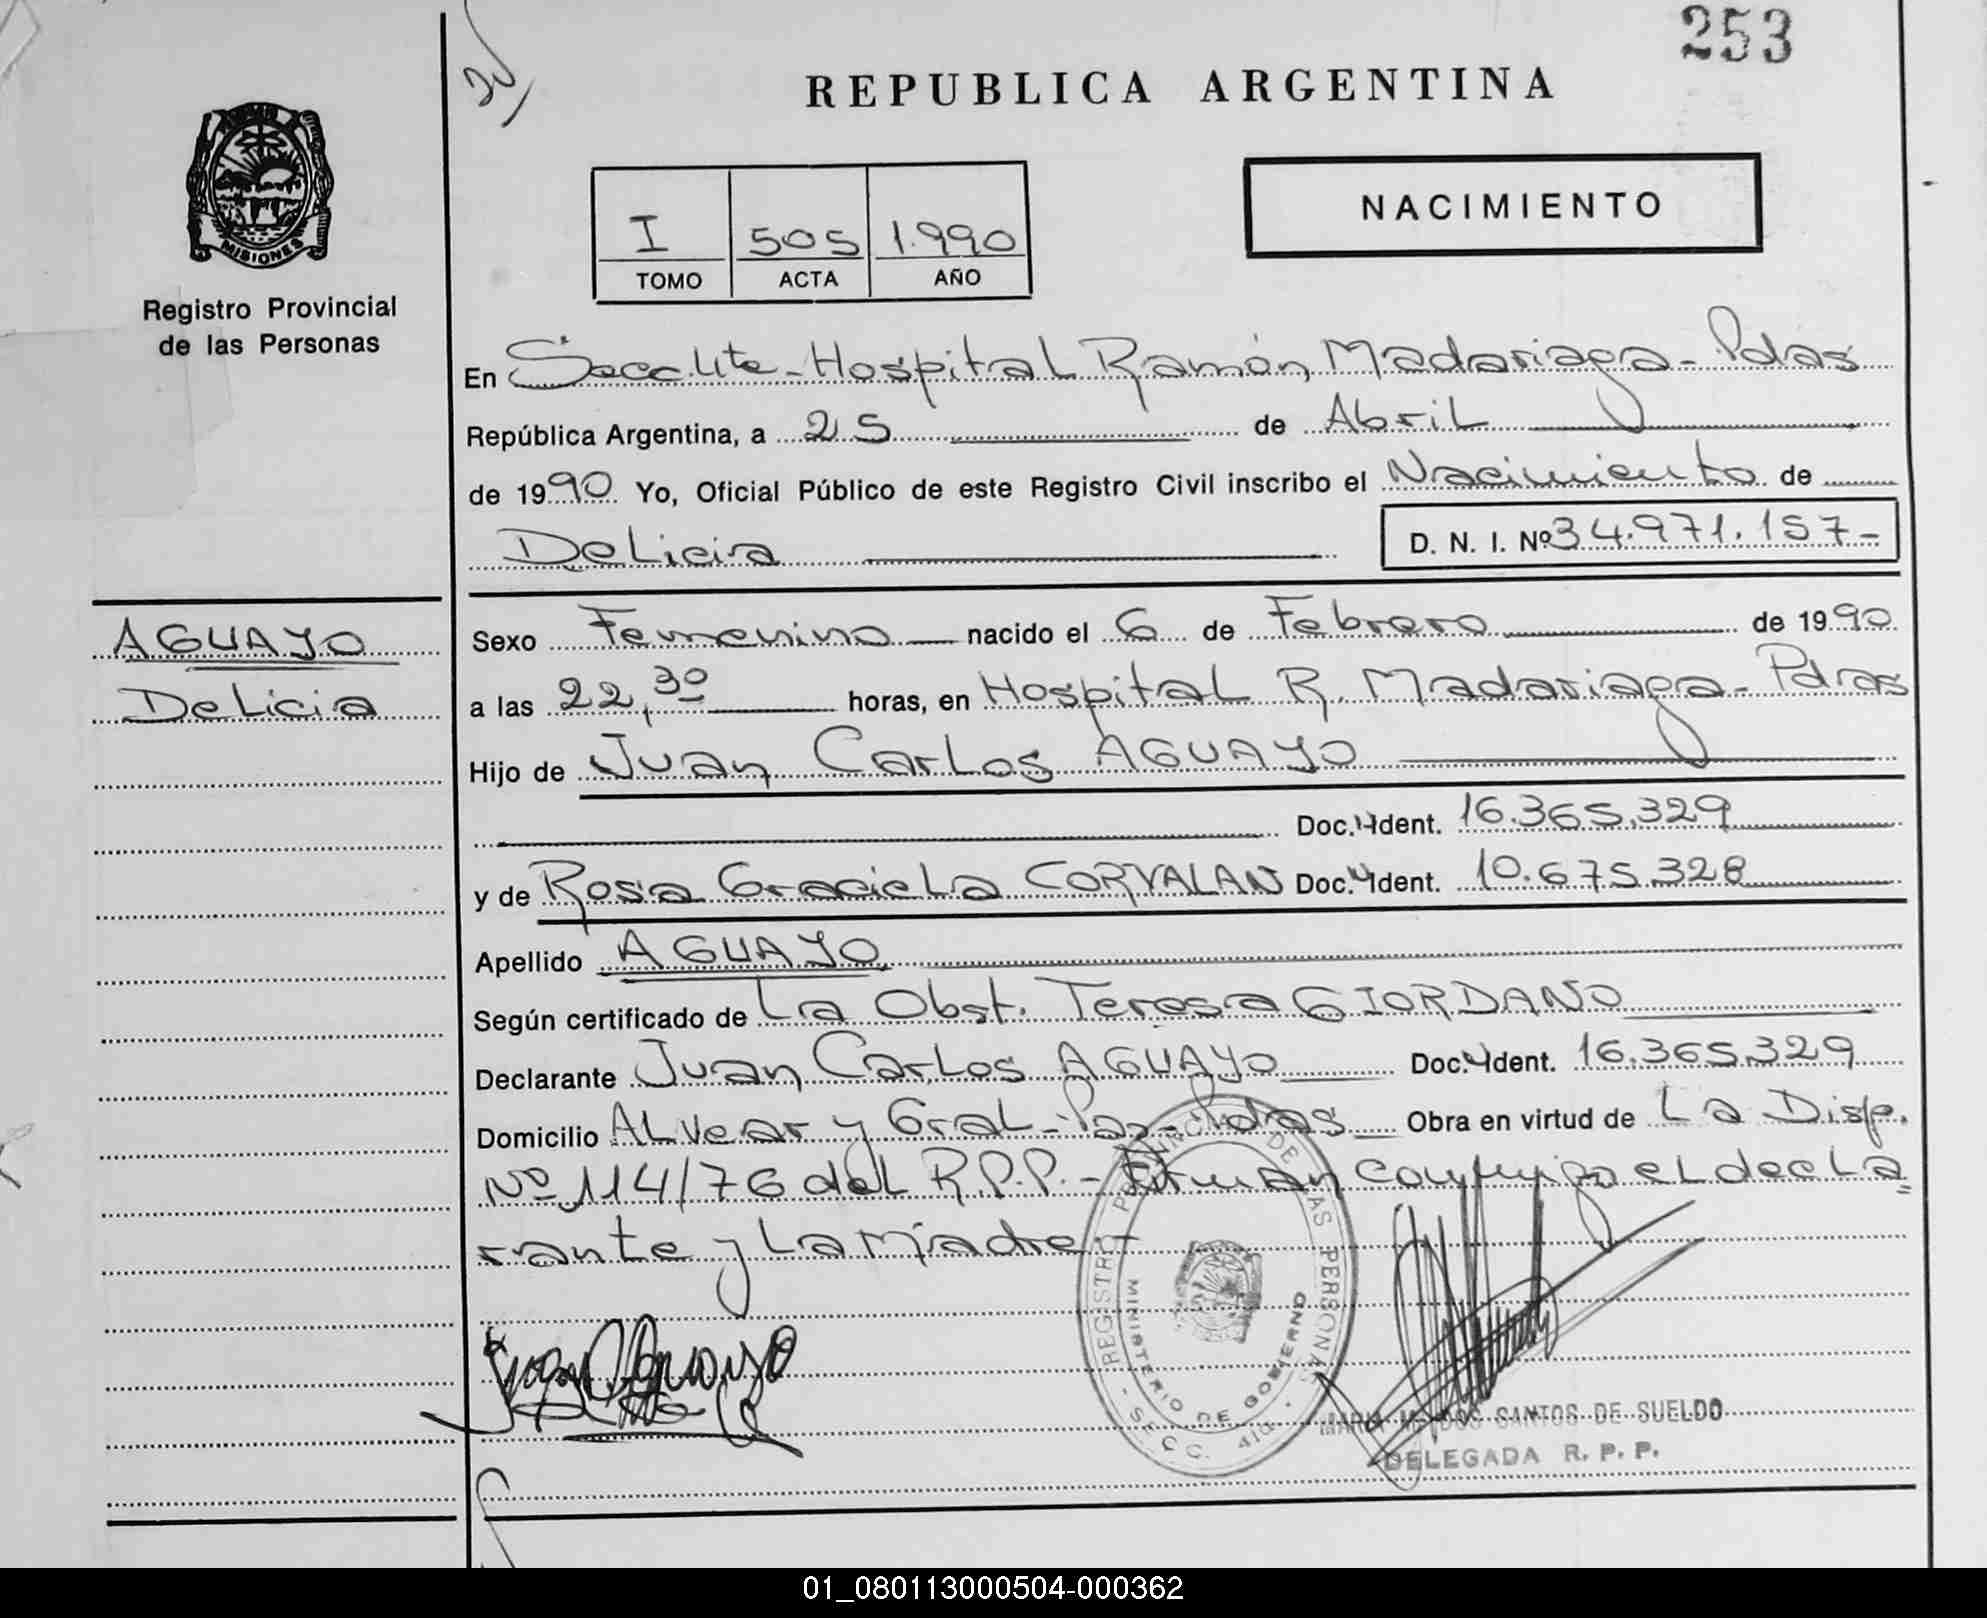 253
REPUBLICA ARGENTINA
MISIONES
Registro Provincial
de las Personas
I 505 1.990
TOMO ACTA AÑO
NACIMIENTO
En Secc. Hospital Ramón Madariaga - Pdas
República Argentina, a 25 de Abril
de 1990 Yo, Oficial Público de este Registro Civil inscribo el Nacimiento de
Delicia D. N. I. Nº 34.971.157-
AGUAYO
Delicia
Sexo Femenino nacido el 6 de Febrero de 1990
a las 22,30 horas, en Hospital R. Madariaga - Pdas
Hijo de Juan Carlos AGUAYO
Doc. Ident. 16.365.329
y de Rosa Graciela CORVALAN Doc. Ident. 10.675.328
Apellido AGUAYO
Según certificado de La Obst. Teresa GIORDANO
Declarante Juan Carlos AGUAYO Doc. Ident. 16.365.329
Domicilio Alvear y Gral. Paz - Pdas Obra en virtud de La Disp.
Nº 114/76 del R.P.P. - Firman conmigo el decla
rante y la Madre.-
REGISTRO PROVINCIAL DE LAS PERSONAS
MINISTERIO DE GOBIERNO
SECC. 4ta
DOS SANTOS DE SUELDO
DELEGADA R. P. P.
01_080113000504-000362